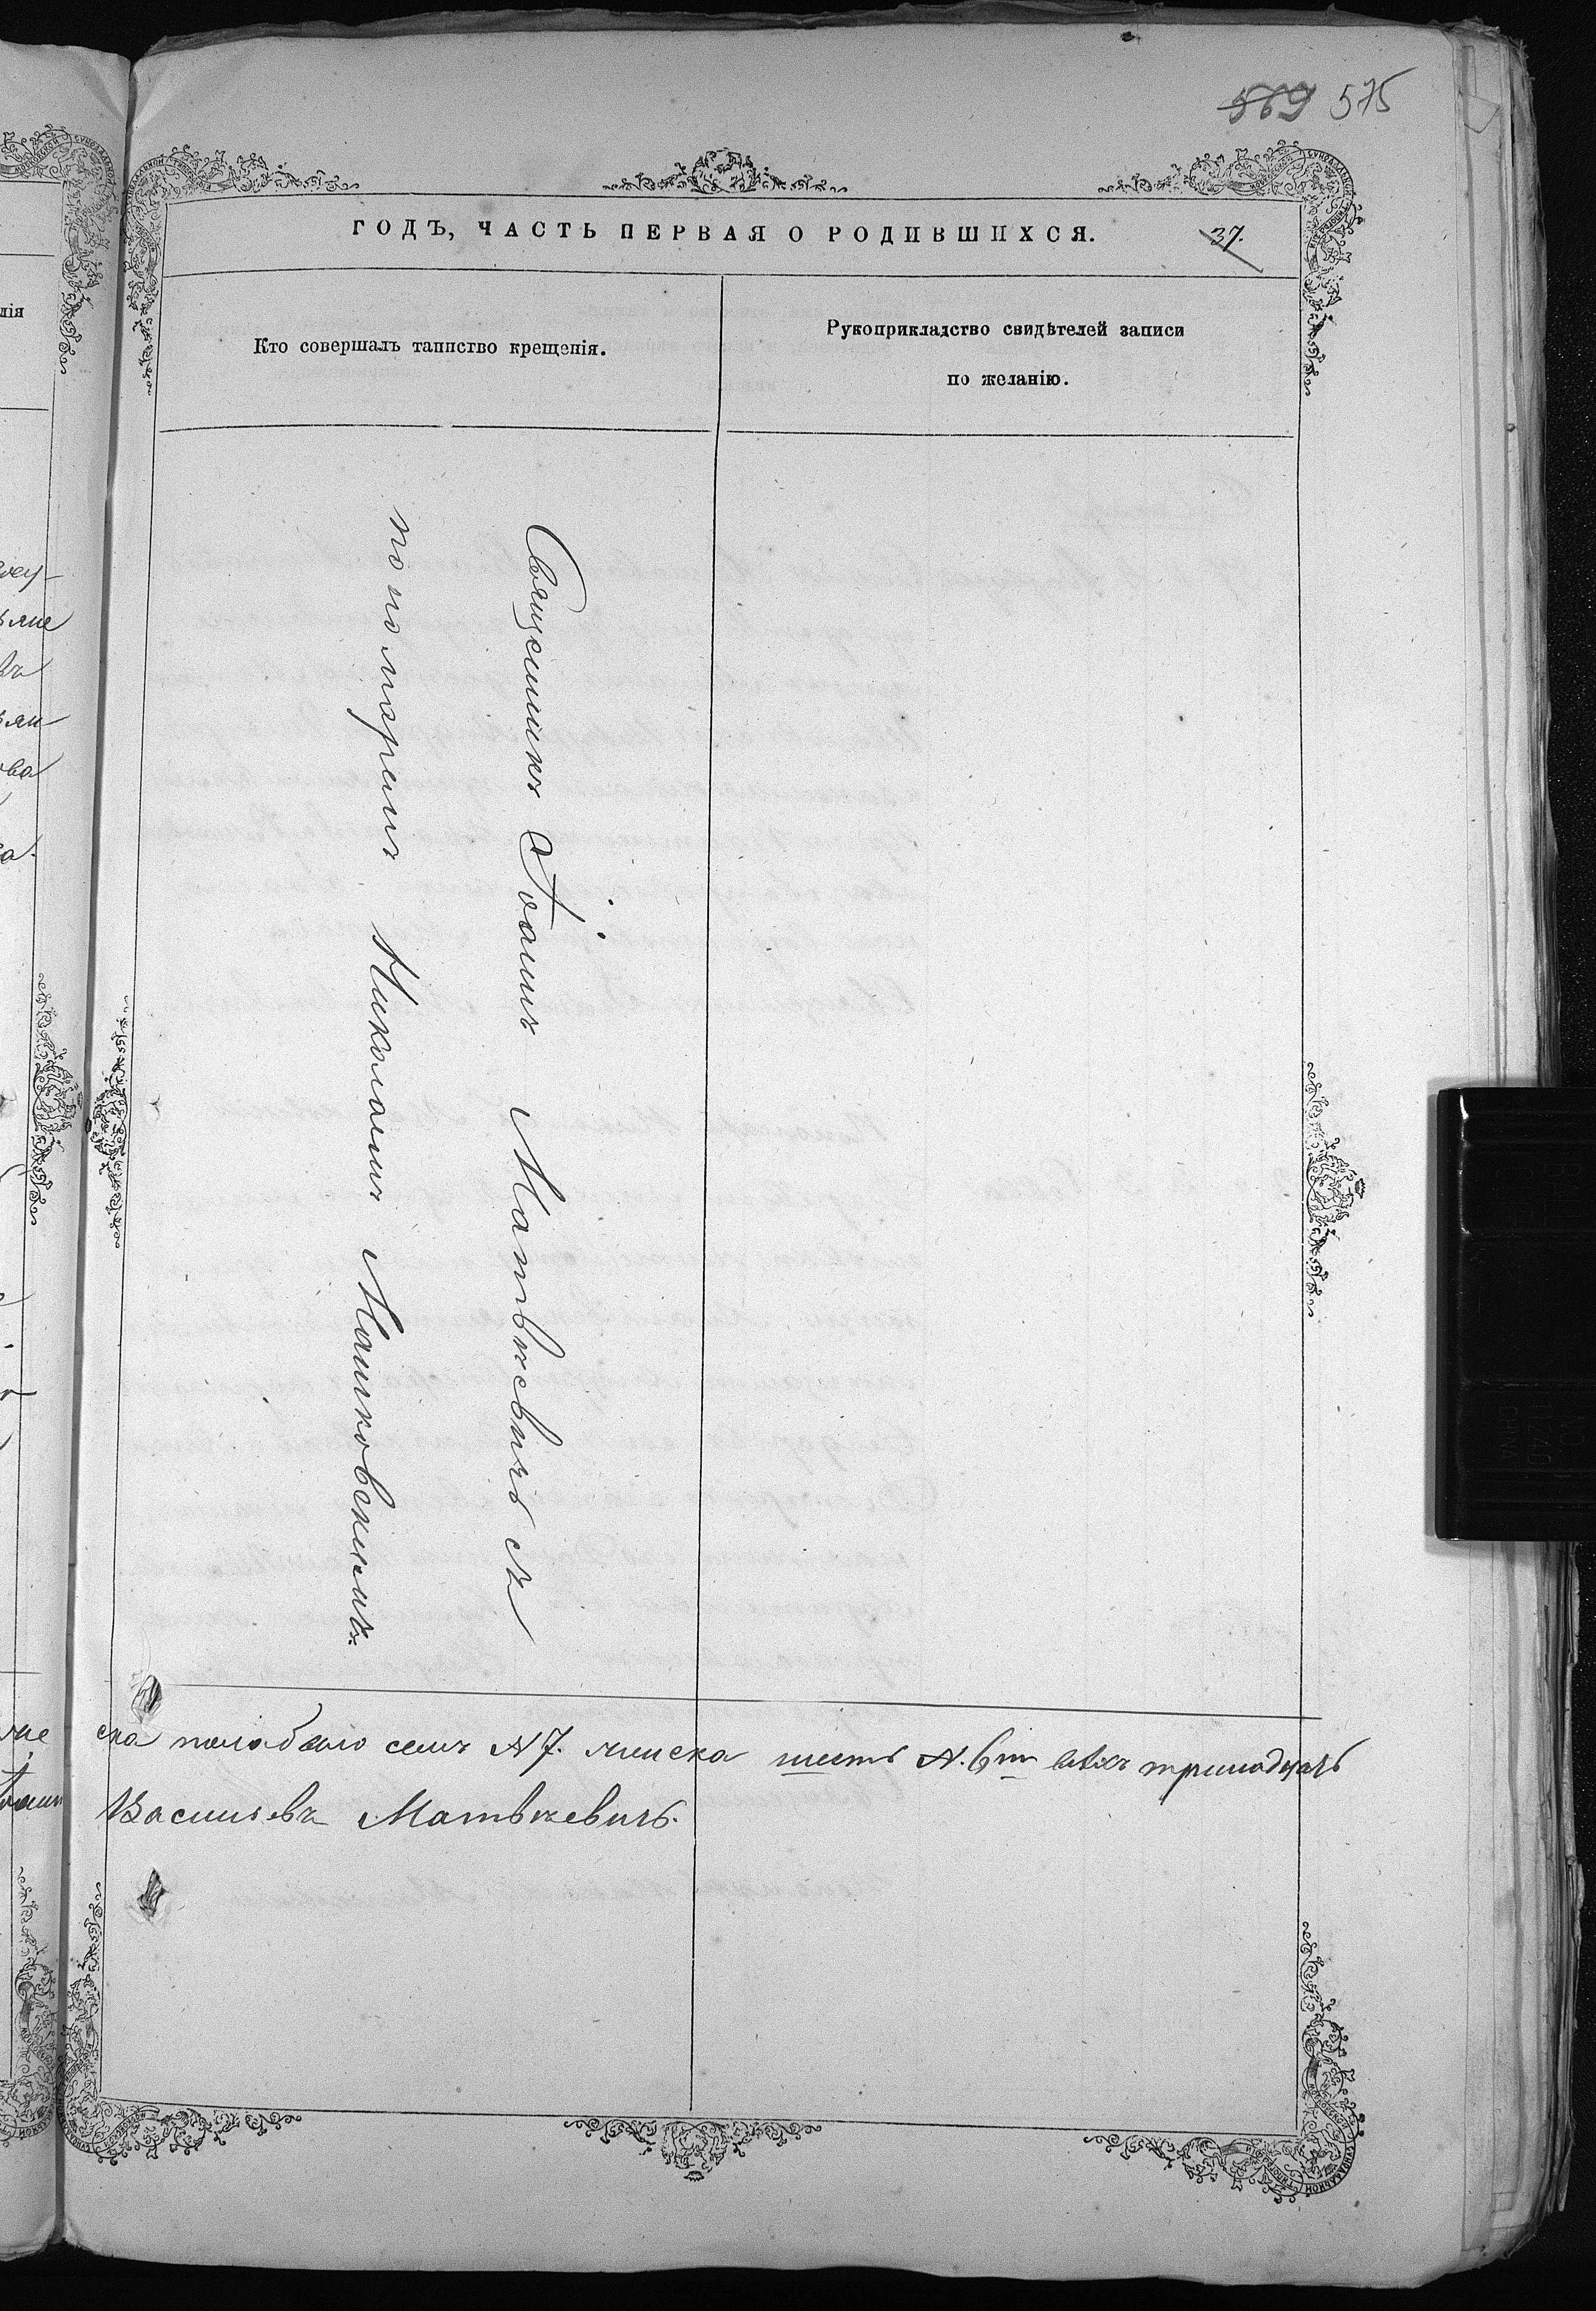 569 575
ГОДЪ, ЧАСТЬ ПЕРВАЯ О РОДИВШИХСЯ.
37.
Кто совершалъ таинство крещенія.
Рукоприкладство свидѣтелей записи
по желанію.
Священникъ Іоаннъ Матвѣевичъ съ
пономаремъ Николаемъ Машковскимъ.
ска пола было семь №7. женска шесть №. 6ть всѣхъ тринадцать
Васильевъ Матвѣевичъ.